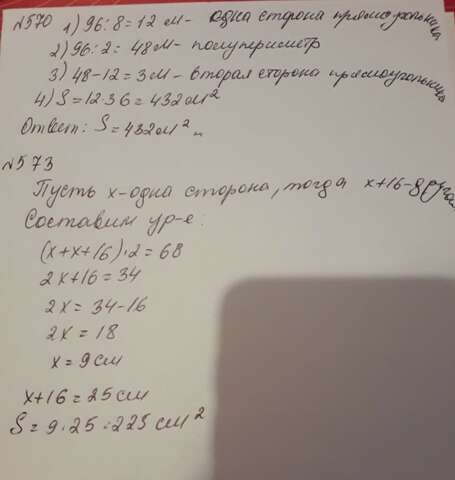 №570 1) 96:8=12 м - одна сторона прямоугольника
2) 96:2=48м - полупериметр
3) 48-12=3 м - вторая сторона прямоугольника
4) S=12·36=432м²
Ответ: S=432м².
№573
Пусть х-одна сторона, тогда х+16-другая
Составим ур-е:
(х+х+16)·2=68
2х+16=34
2х=34-16
2х=18
х=9см
х+16=25см
S=9·25=225 см²